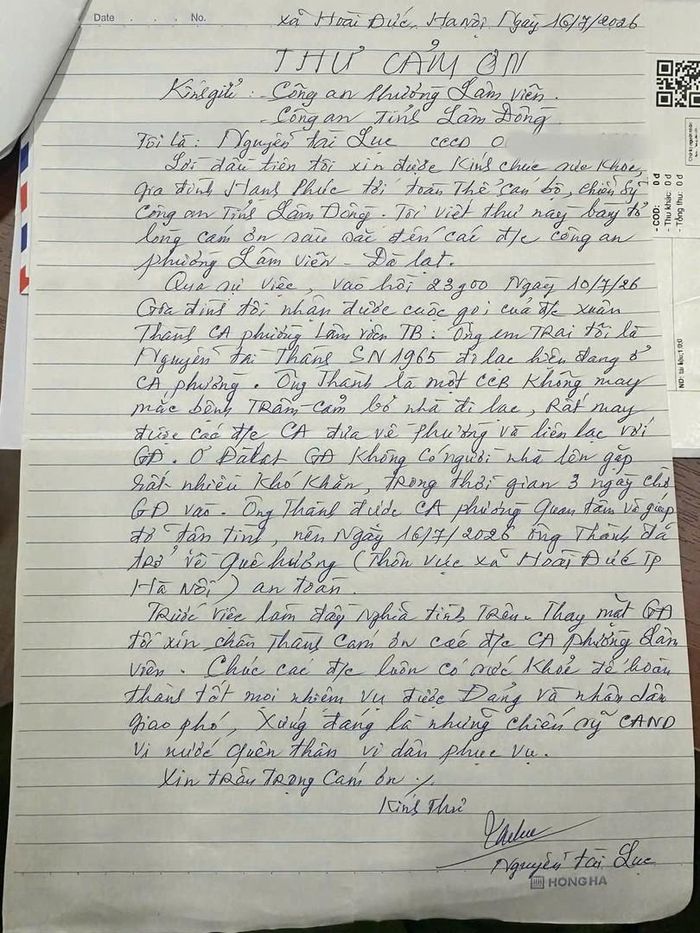 Date . . . No.
xã Hoài Đức, Hà Nội Ngày 16/7/2026
THƯ CẢM ƠN
Kính gửi : - Công an phường Lâm Viên.
- Công an tỉnh Lâm Đồng
Tôi là : Nguyễn Tài Lục CCCD 0
Lời đầu tiên tôi xin được kính chúc sức khỏe,
gia đình Hạnh Phúc tới toàn thể cán bộ, chiến sỹ
Công an Tỉnh Lâm Đồng. Tôi viết thư này bày tỏ
lòng cảm ơn sâu sắc đến các đ/c công an
phường Lâm Viên - Đà Lạt.
Qua sự việc, vào hồi 23g00 Ngày 10/7/26
Gia đình tôi nhận được cuộc gọi của đ/c Xuân
Thành CA phường Lâm Viên TB : Ông em Trai tôi là
Nguyễn Tài Thành SN 1965 đi lạc hiện đang ở
CA phường. Ông Thành là một CCB không may
mắc bệnh Trầm cảm bỏ nhà đi lạc, Rất may
được các đ/c CA đưa về phường và liên lạc với
GĐ. Ở Đà Lạt GĐ không có người nhà lên gặp
rất nhiều khó khăn, trong thời gian 3 ngày chờ
GĐ vào. Ông Thành được CA phường quan tâm và giúp
đỡ tận tình, nên Ngày 16/7/2026 ông Thành đã
trở về quê hương (Thôn Vực xã Hoài Đức TP
Hà Nội) an toàn.
Trước việc làm đầy nghĩa tình trên. Thay mặt GĐ
tôi xin chân thành cảm ơn các đ/c CA phường Lâm
Viên. Chúc các đ/c luôn có sức khỏe để hoàn
thành tốt mọi nhiệm vụ được Đảng và nhân dân
giao phó, xứng đáng là những chiến sỹ CAND
vì nước quên thân vì dân phục vụ.
Xin trân trọng cảm ơn ./.
Kính Thư
Nguyễn Tài Lục
HONG HA
- COD: 0 đ
- Thu khác: 0 đ
- Tổng thu: 0 đ